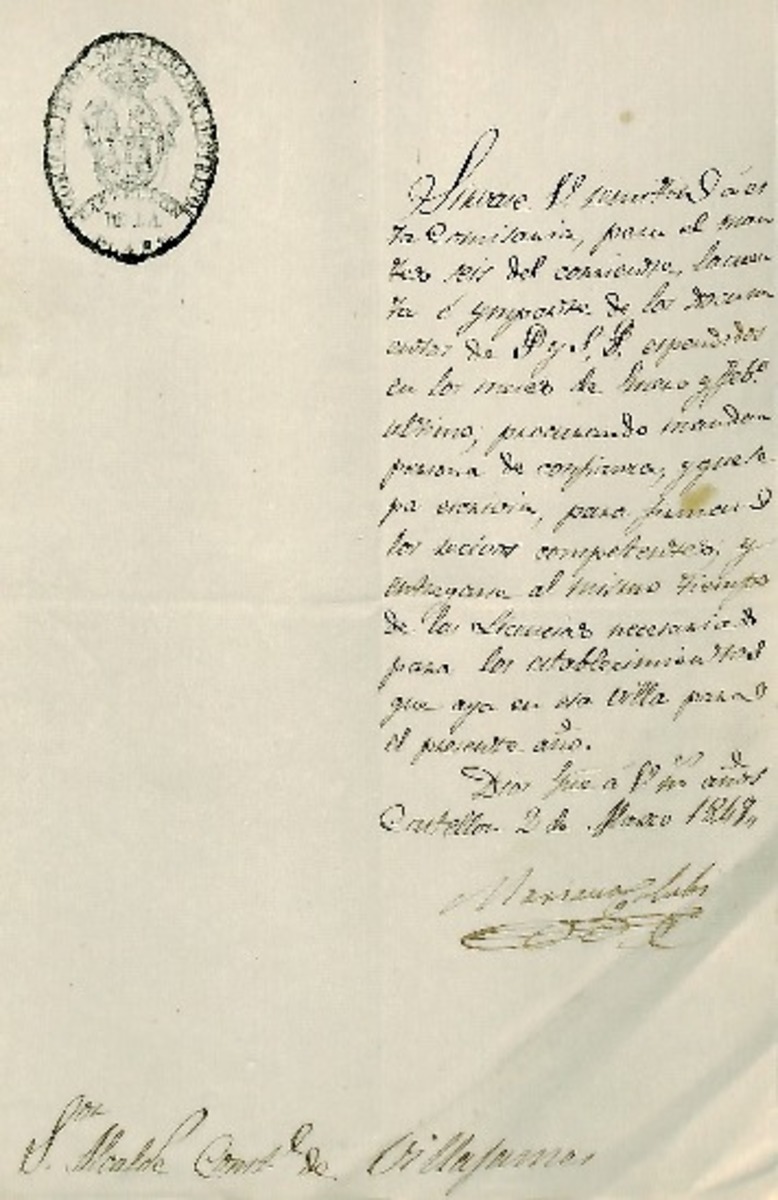 Sirvase V. remitir á es
ta Comisaria, para el mar
tes seis del corriente, la cuen
ta é ymporte de los docum
entos de P y S. P. espendidos
en los meses de Enero y Feb.º
ultimo; procurando mandar
persona de confianza, y que se
pa escrivir, para firmar
los recivos competentes; y
entregarse al mismo tiempo
de las Licencias necesarias
para los establecimientos
que aya en esa villa para
el presente año.
Dios gũe á V. m.s años
Castellon 2 de Marzo 1847,,
Mariano
S.or
S. Alcalde Const.l de Villafames